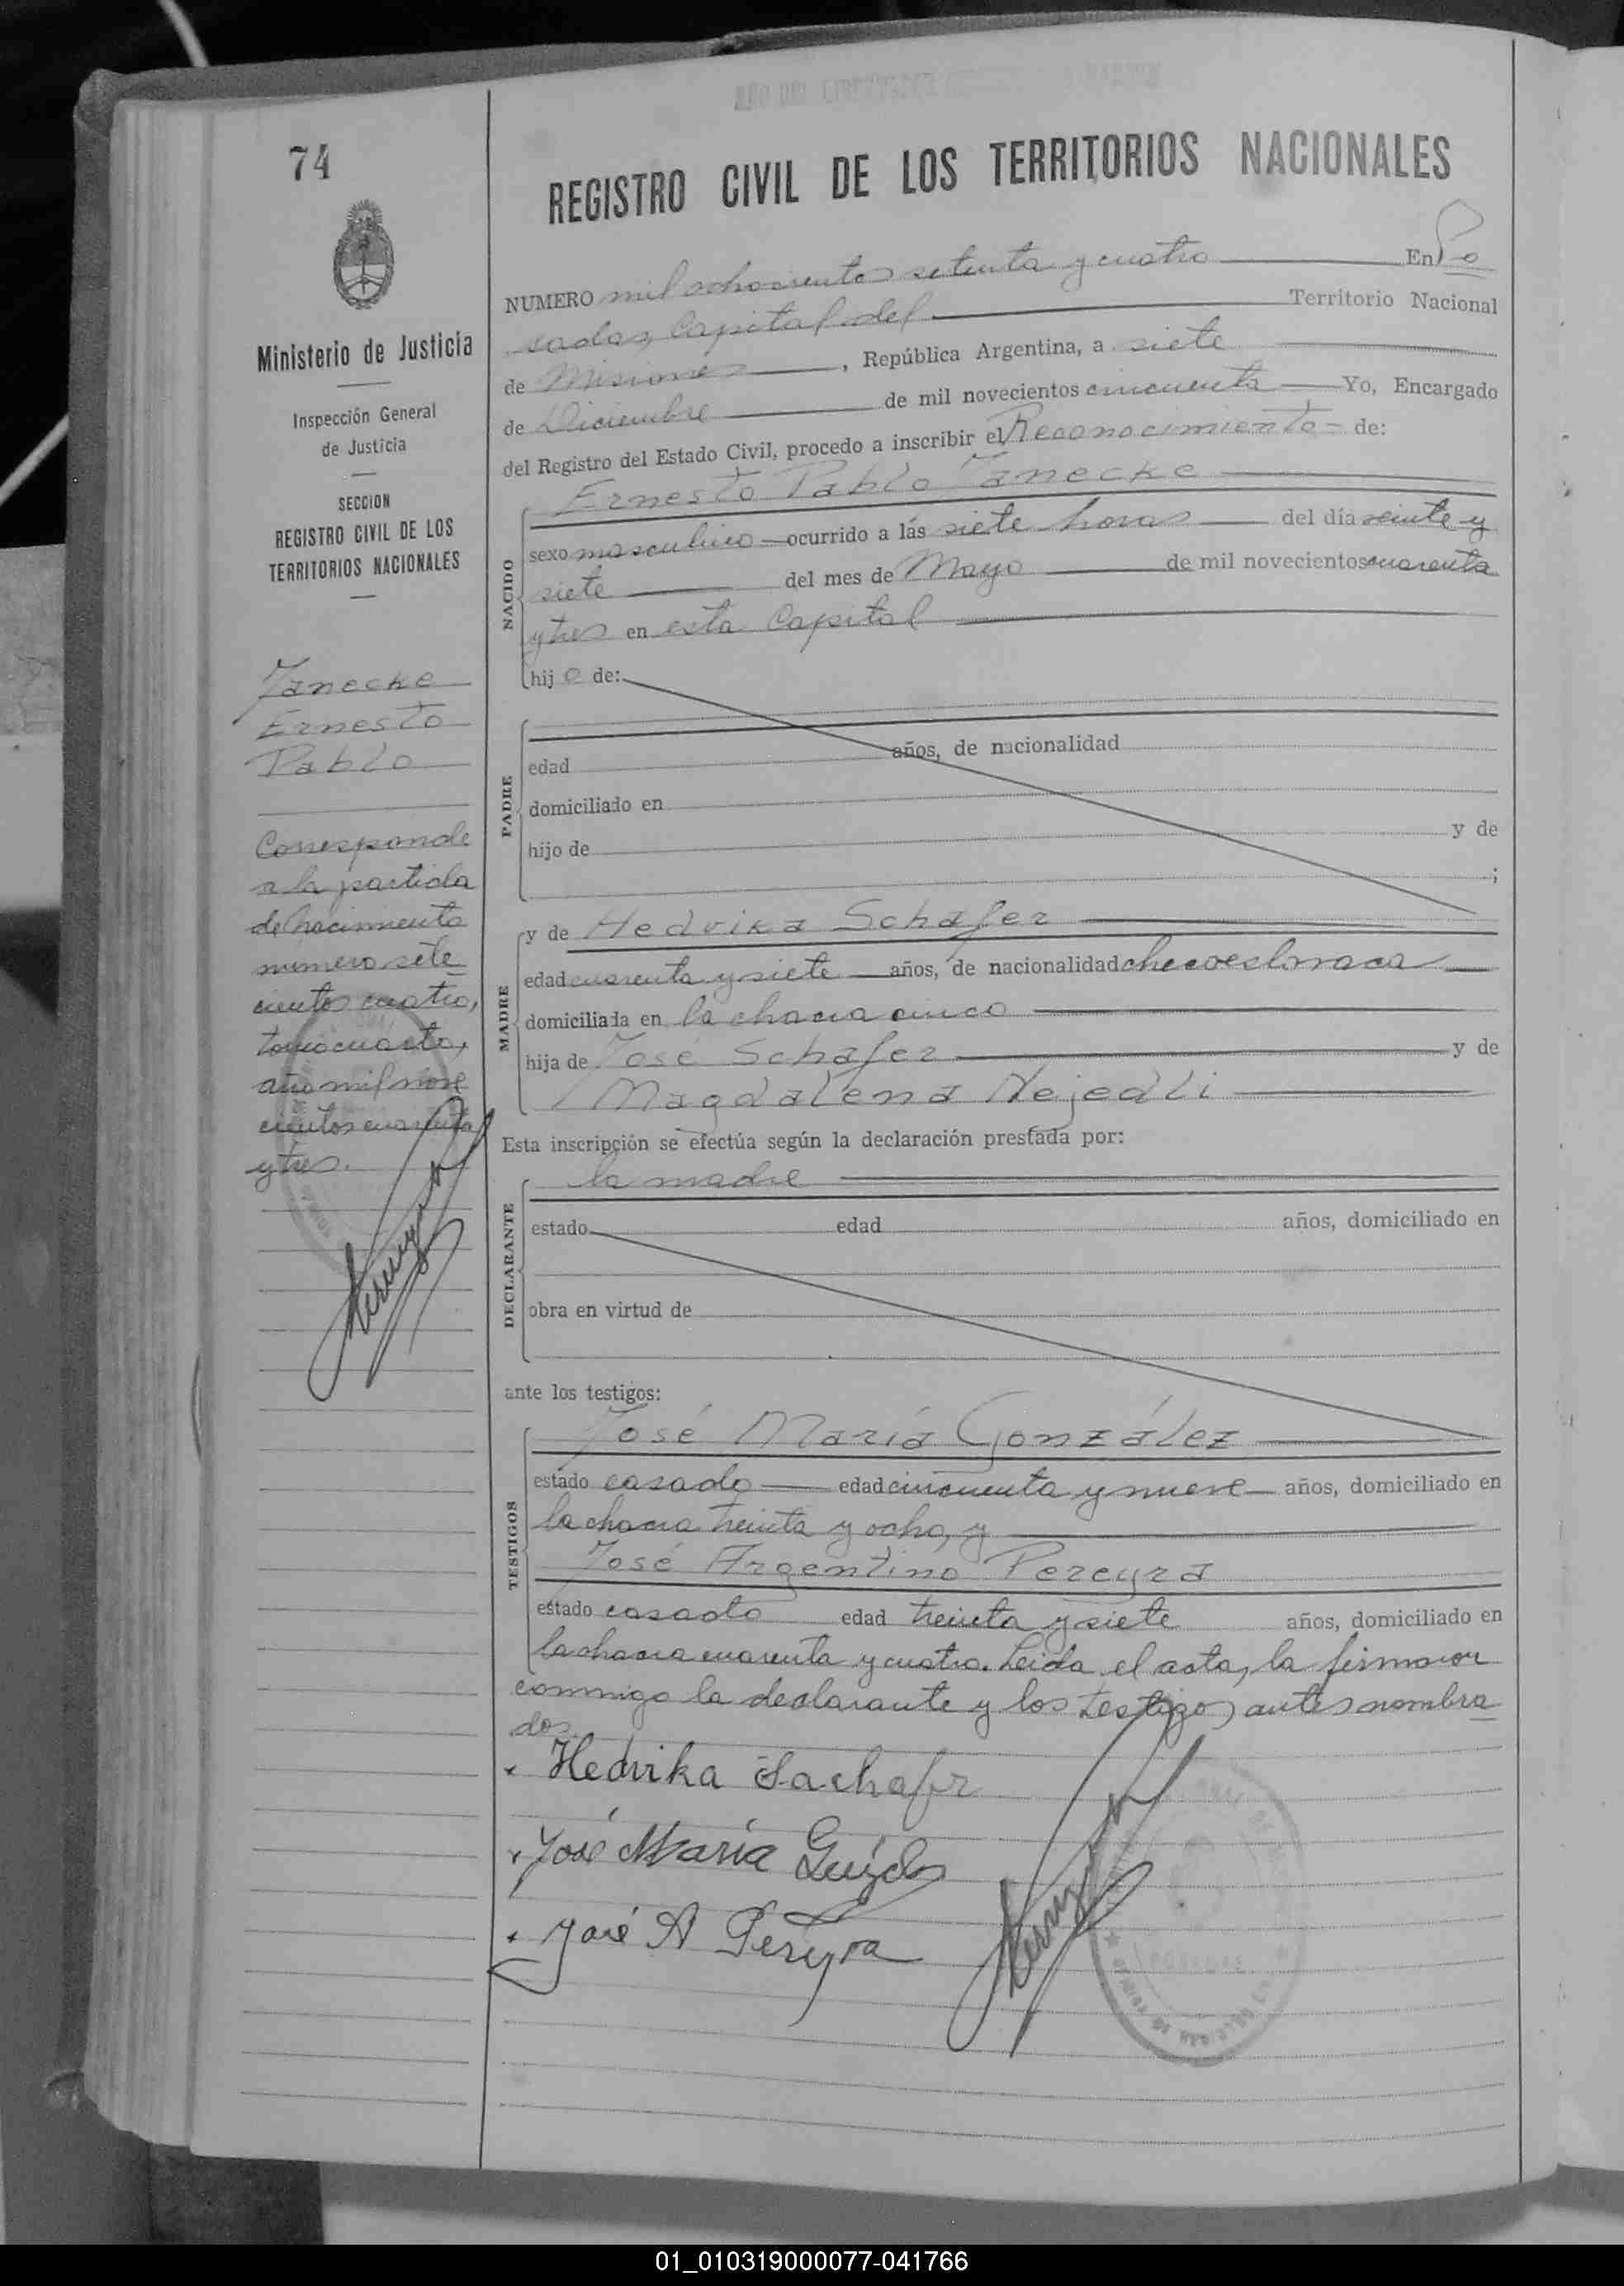 AÑO DEL LIBERTADOR
74
REGISTRO CIVIL DE LOS TERRITORIOS NACIONALES
Ministerio de Justicia
Inspección General
de Justicia
SECCION
REGISTRO CIVIL DE LOS
TERRITORIOS NACIONALES
Janecke
Ernesto
Pablo
Corresponde
a la partida
de nacimiento
número sete
cientos cuatro,
tomo cuarto,
año mil nove
cientos cuarenta
y tres.
NUMERO mil ochocientos setenta y cuatro En Po
sadas, Capital del Territorio Nacional
de Misiones, República Argentina, a siete
de Diciembre de mil novecientos cincuenta Yo, Encargado
del Registro del Estado Civil, procedo a inscribir el Reconocimiento de:
NACIDO
Ernesto Pablo Janecke
sexo masculino ocurrido a lás siete horas del día veinte y
siete del mes de Mayo de mil novecientos cuarenta
y tres en esta Capital
hij o de:
PADRE
edad años, de nacionalidad
domiciliado en
hijo de y de
;
MADRE
y de Hedvika Schafer
edad cuarenta y siete años, de nacionalidad checoeslovaca
domiciliada en la chacra cinco
hija de José Schafer y de
Magdalena Nejedli
Esta inscripción se efectúa según la declaración prestada por:
DECLARANTE
la madre
estado edad años, domiciliado en
obra en virtud de
ante los testigos:
TESTIGOS
José María González
estado casado edad cincuenta y nueve años, domiciliado en
la chacra treinta y ocho, y
José Argentino Pereyra
estado casado edad treinta y siete años, domiciliado en
la chacra cuarenta y cuatro. Leida el acta, la firmaron
conmigo la declarante y los testigos antes nombra
dos.
Hedvika Sachafr
José María
José A Pereyra
POSADAS
01_010319000077-041766